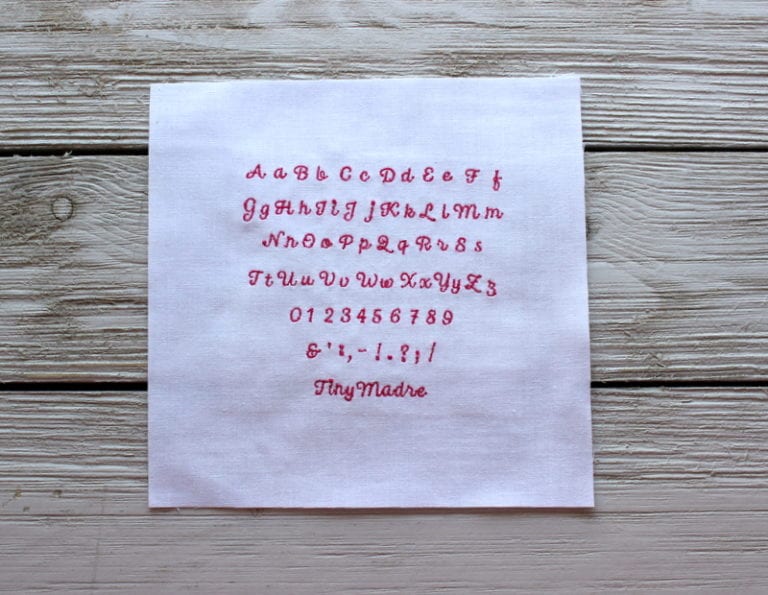 A a B b C c D d E e F f
G g H h I i J j K k L l M m
N n O o P p Q q R r S s
T t U u V v W w X x Y y Z z
0 1 2 3 4 5 6 7 8 9
& ' : , - ! . ? ; /
Tiny Madre